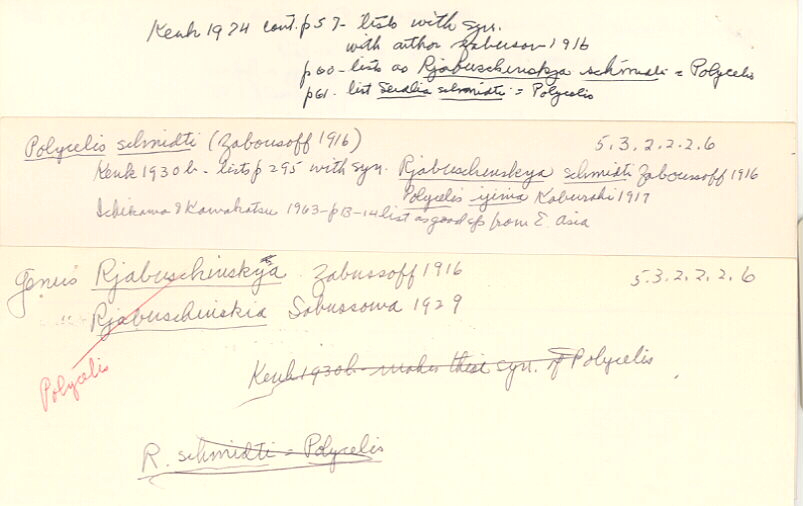 Kenk 1974 cont. p57 - lists with syn.
with author Zabusov 1916
p60 - lists as Rjabuschinskya schmidti = Polycelis
p61. list Seidlia schmidti = Polycelis
Polycelis schmidti (Zabousoff 1916) 5.3.2.2.2.6
Kenk 1930b - lists p 295 with syn. Rjabuschinskya schmidti Zaboussoff 1916
Polycelis ijimai Kaburaki 1917
Ichikawa & Kawakatsu 1963 - p 13-14 list as good sp from E. Asia
Genus Rjabuschinskya Zabussoff 1916 5.3.2.2.2.6
" Rjabuschinskia Sabussowa 1929
Polycelis
Kenk 1930b - makes these syn. of Polycelis
R. schmidti = Polycelis